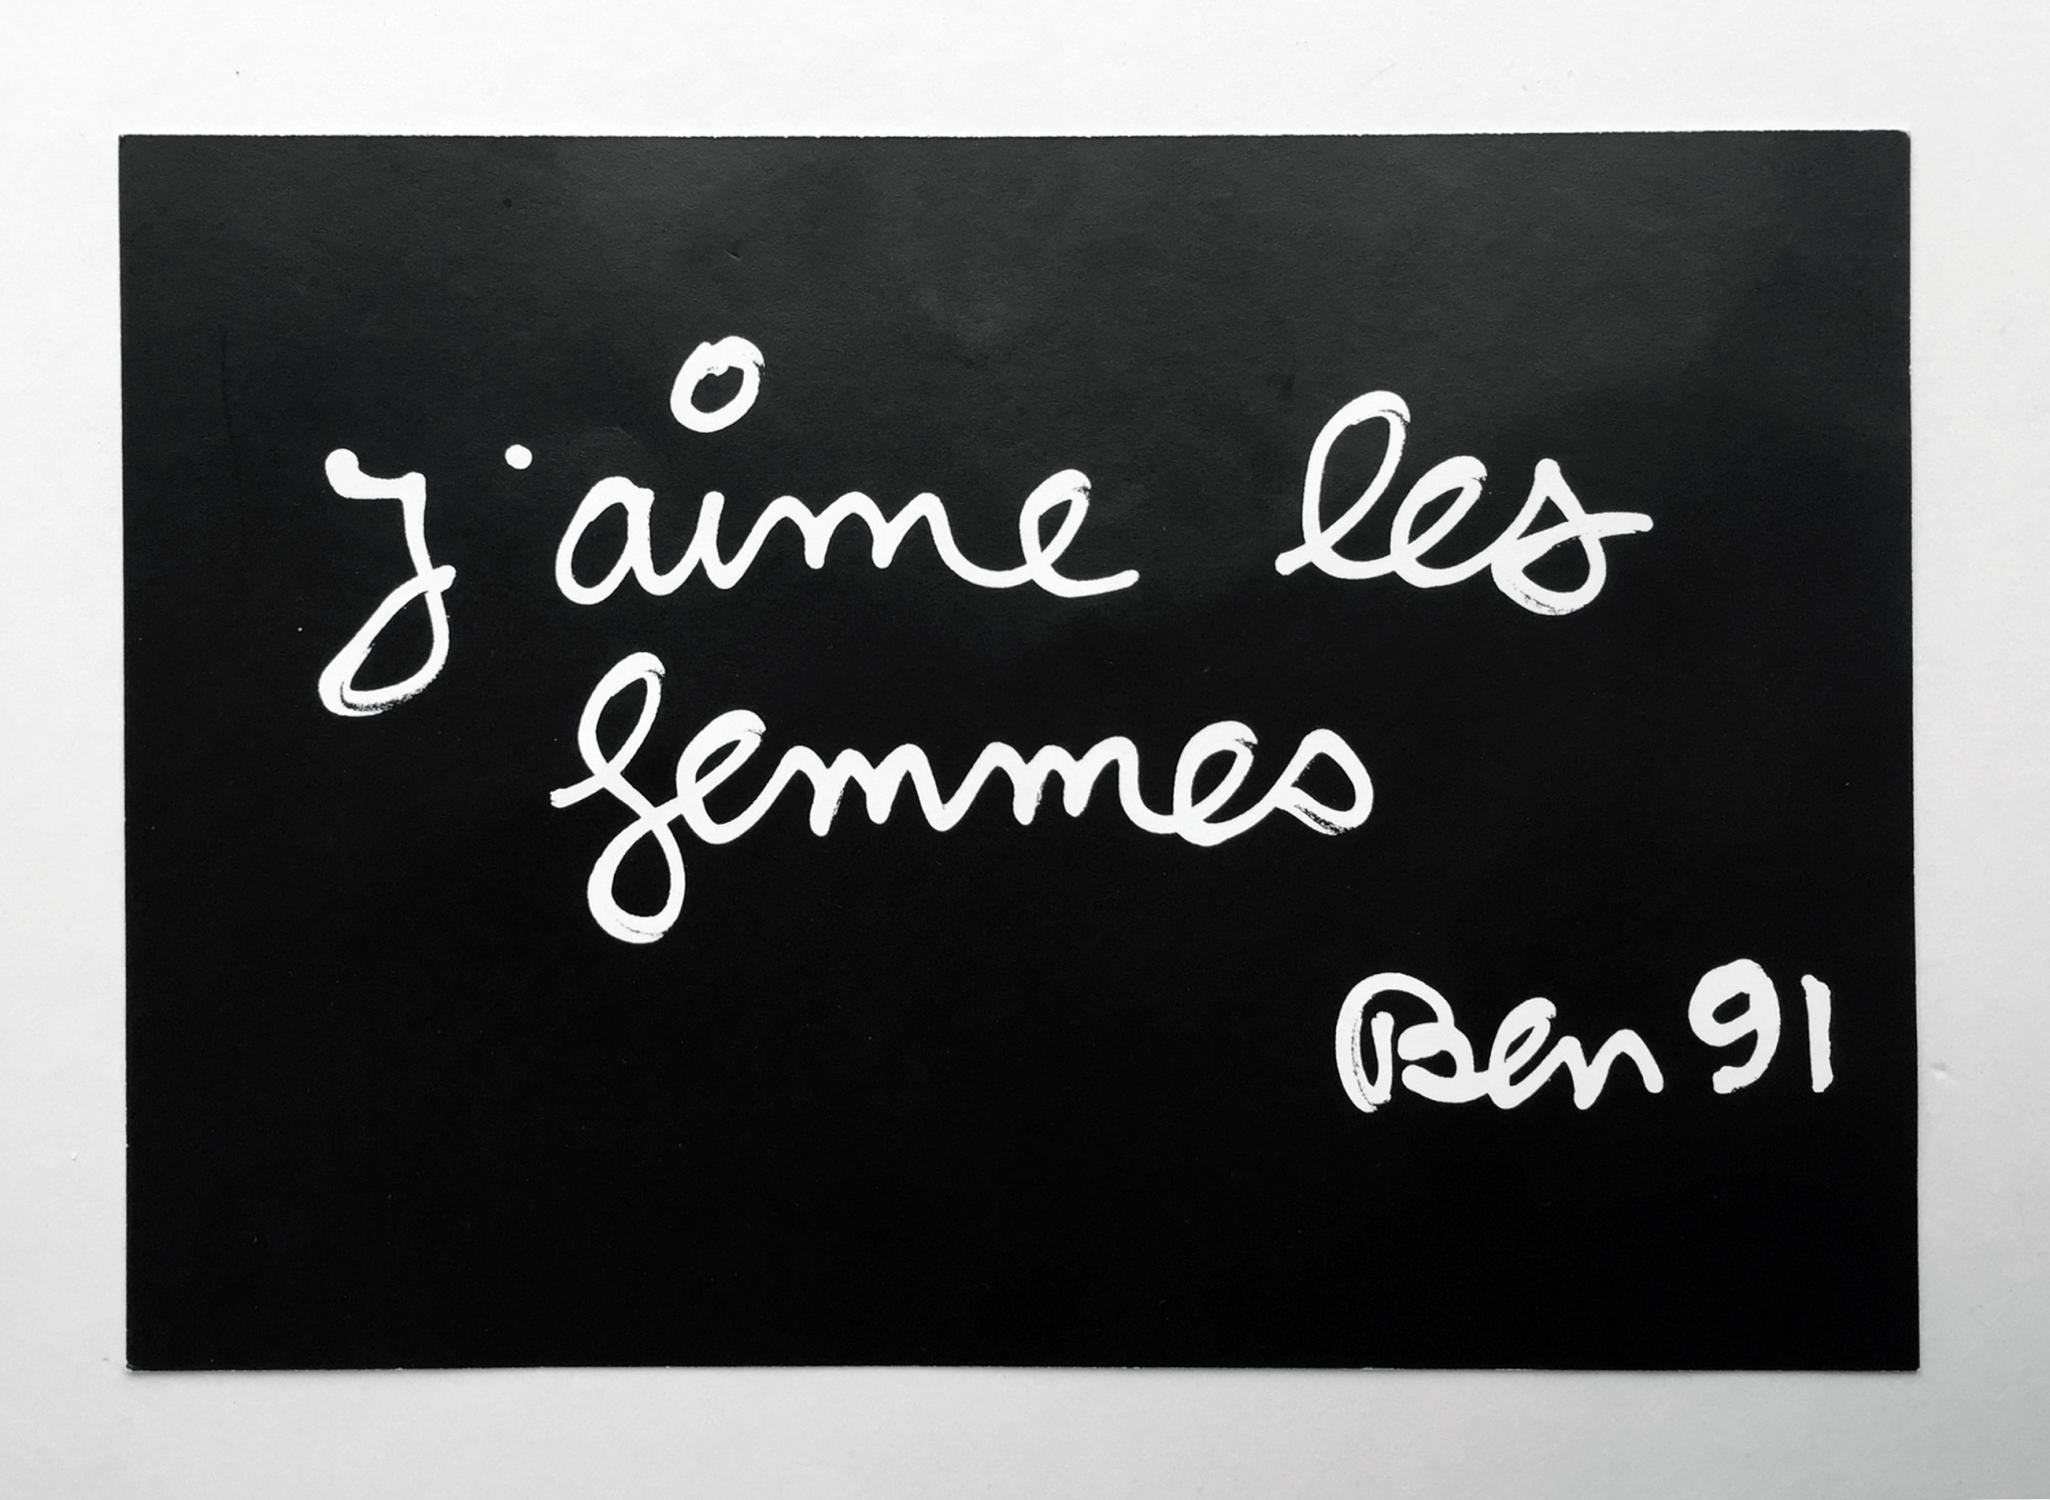 j'aime les
femmes
Ben 91